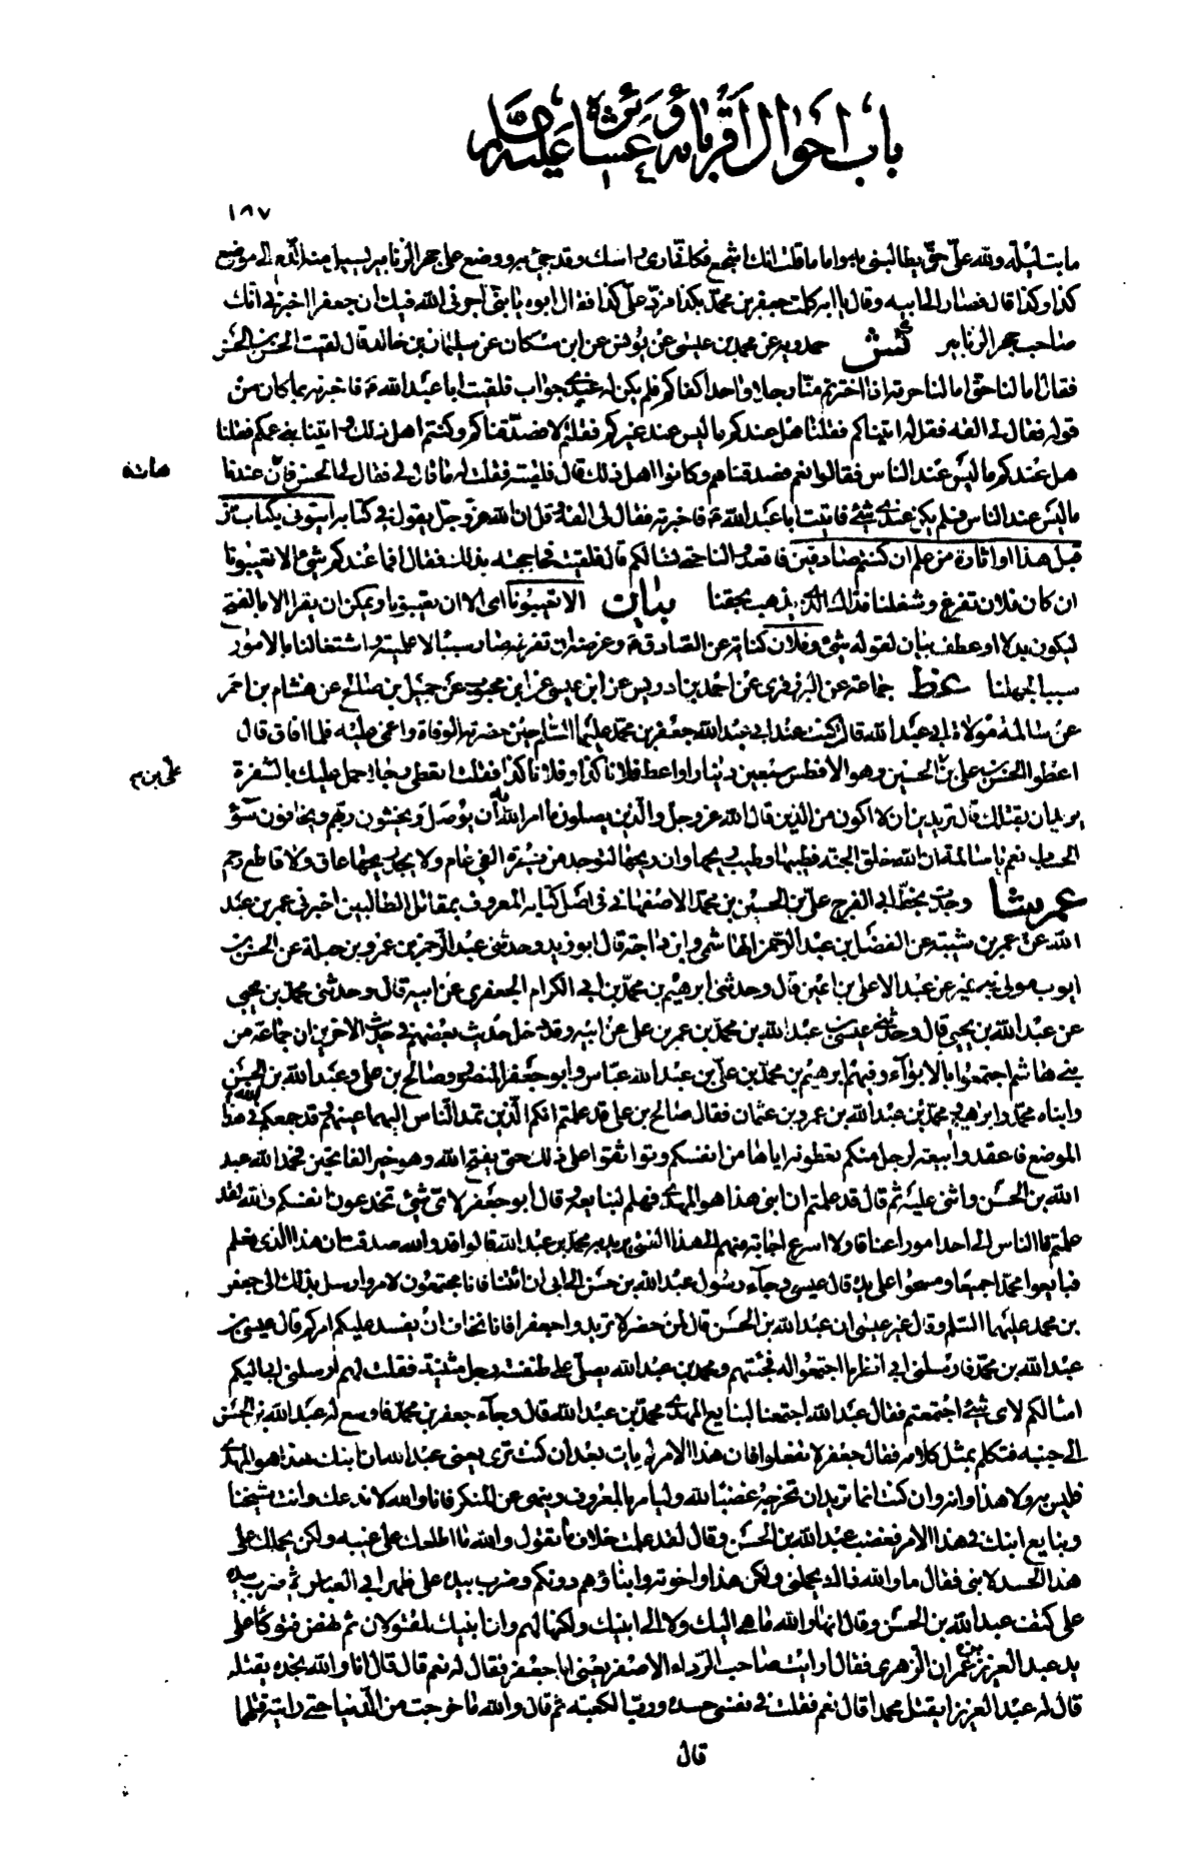 باب احوال اقربائه وعشائره عليه السلام
١٨٧
ما بت ليلة ولله علي حق يطالبني به واما ما قلت انك اشجع فكاني ارى راسك وقد جيء به ووضع على جحر الزنابير يسيل منه الدم الى موضع
كذا وكذا قال فصار الى ابيه وقال يا ابه كلمت جعفر بن محمد بكذا فرد علي كذا فقال ابوه يا بني آجرني الله فيك ان جعفرا اخبرني انك
صاحب جحر الزنابير كش حمدويه عن محمد بن عيسى عن يونس عن ابن مسكان عن سليمان بن خالد قال لقيت الحسن بن الحسن
فقال اما لنا حق اما لنا حرمة اذا اخترتم منا رجلا واحدا كفاكم فلم يكن له عندي جواب فلقيت ابا عبد الله ع فاخبرته بما كان من
قوله فقال لي القه فقل له اتيناكم فقلنا هل عندكم ما ليس عند غيركم فقلتم لا فصدقناكم وكنتم اهل ذلك واتينا بني عمكم فقلنا
هل عندكم ما ليس عند الناس فقالوا نعم فصدقناهم وكانوا اهل ذلك قال فلقيته فقلت له ما قال لي فقال لي الحسن فان عندنا
ما ليس عند الناس فلم يكن عندي شيء فاتيت ابا عبد الله ع فاخبرته فقال لي القه وقل ان الله عز وجل يقول في كتابه ايتوني بكتاب من
قبل هذا او اثارة من علم ان كنتم صادقين فاقعدوا لنا حتى نسالكم قال فلقيته فحاججته بذلك فقال افما عندكم شيء الا تعيبونا
ان كان فلان تفرغ وشغلنا فذاك الذي يذهب بحقنا بيان الا تعيبونا اي الا ان تعيبونا ويمكن ان يقرا الا بالفتح
ليكون بدلا او عطف بيان لقوله شيء وفلان كناية عن الصادق ع وغرضه ان تفرغه صار سببا لاعلميته واشتغالنا بالامور
سببا لجهلنا غط جماعة عن البزوفري عن احمد بن ادريس عن ابن عيسى عن ابن محبوب عن جميل بن صالح عن هشام بن احمر
عن سالمة مولاة ابي عبد الله قالت كنت عند ابي عبد الله جعفر بن محمد عليهما السلم حين حضرته الوفاة واغمي عليه فلما افاق قال
اعطوا الحسن بن علي بن الحسين وهو الافطس سبعين دينارا واعط فلانا كذا وفلانا كذا فقلت اتعطي رجلا حمل عليك بالشفرة
يريد ان يقتلك قال تريدين ان لا اكون من الذين قال الله عز وجل والذين يصلون ما امر الله به ان يوصل ويخشون ربهم ويخافون سوء
الحساب نعم يا سالمة ان الله خلق الجنة فطيبها وطيب ريحها وان ريحها لتوجد من مسيرة الفي عام ولا يجد ريحها عاق ولا قاطع رحم
عم شا وجدت بخط ابي الفرج علي بن الحسين بن محمد الاصفهاني في اصل كتابه المعروف بمقاتل الطالبيين اخبرني عمر بن عبد
الله عن عمر بن شيبة عن الفضل بن عبد الرحمن الهاشمي وابن داجة قال ابو زيد وحدثني عبد الرحمن بن عمرو بن جبلة عن الحسن بن
ايوب مولى بني نمير عن عبد الاعلى بن اعين قال وحدثني ابرهيم بن محمد بن ابي الكرام الجعفري عن ابيه قال وحدثني محمد بن يحيى
عن عبد الله بن يحيى قال وحدثني عيسى بن عبد الله بن محمد بن عمر بن علي عن ابيه وقد دخل حديث بعضهم في حديث الاخرين ان جماعة من
بني هاشم اجتمعوا بالابواء وفيهم ابرهيم بن محمد بن علي بن عبد الله عباس وابو جعفر المنصور وصالح بن علي وعبد الله بن الحسن
وابناه محمد وابراهيم ومحمد بن عبد الله بن عمرو بن عثمان فقال صالح بن علي قد علمتم انكم الذين تمد الناس اليهم اعينهم وقد جمعكم الله في هذا
الموضع فاعقدوا بيعة لرجل منكم تعطونه اياها من انفسكم وتواثقوا على ذلك حتى يفتح الله وهو خير الفاتحين فحمد الله عبد
الله بن الحسن واثنى عليه ثم قال قد علمتم ان ابني هذا هو المهدي فهلم لنبايعه قال ابو جعفر لاي شيء تخدعون انفسكم والله لقد
علمتم ما الناس الى احد امور اعناقا ولا اسرع اجابة منهم الى هذا الفتى يريد به محمد بن عبد الله قالوا قد والله صدقت ان هذا الذي نعلم
فبايعوا محمدا جميعا ومسحوا على يده قال عيسى وجاء رسول عبد الله بن حسن الى ابي ان ائتنا فانا مجتمعون لامر وارسل بذلك الى جعفر
بن محمد عليهما السلم وقال غير عيسى ان عبد الله بن الحسن قال لمن حضر لا تريدوا جعفرا فانا نخاف ان يفسد عليكم امركم قال عيسى بن
عبد الله بن محمد فارسلني ابي انظر ما اجتمعوا له فجئتهم ومحمد بن عبد الله يصلي على طنفسة رحل مثنية فقلت لهم ارسلني ابي اليكم
اسالكم لاي شيء اجتمعتم فقال عبد الله اجتمعنا لنبايع المهدي محمد بن عبد الله قال وجاء جعفر بن محمد فاوسع له عبد الله بن الحسن
الى جنبه فتكلم بمثل كلامه فقال جعفر لا تفعلوا فان هذا الامر لم يات بعد ان كنت ترى يعني عبد الله ان ابنك هذا هو المهدي
فليس به ولا هذا وانه وان كنت انما تريد ان تخرجه غضبا لله وليامر بالمعروف وينهى عن المنكر فانا والله لا ندعك وانت شيخنا
ونبايع ابنك في هذا الامر فغضب عبد الله بن الحسن وقال لقد علمت خلاف ما تقول والله ما اطلعك على غيبه ولكن يحملك على
هذا الحسد لابني فقال ما والله ذاك يحملني ولكن هذا واخوته وابناؤهم دونكم وضرب بيده على ظهر ابي العباس ثم ضرب بيده
على كتف عبد الله بن الحسن وقال انها والله ما هي اليك ولا الى ابنيك ولكنها لهم وان ابنيك لمقتولان ثم نهض فتوكا على
يد عبد العزيز بن عمران الزهري فقال ارايت صاحب الرداء الاصفر يعني ابا جعفر فقال له نعم قال قال انا والله نجده يقتله
قال له عبد العزيز ايقتل محمدا قال نعم فقلت في نفسي حسده ورب الكعبة ثم قال والله ما خرجت من الدنيا حتى رايته قتلهما
قال
علي بن